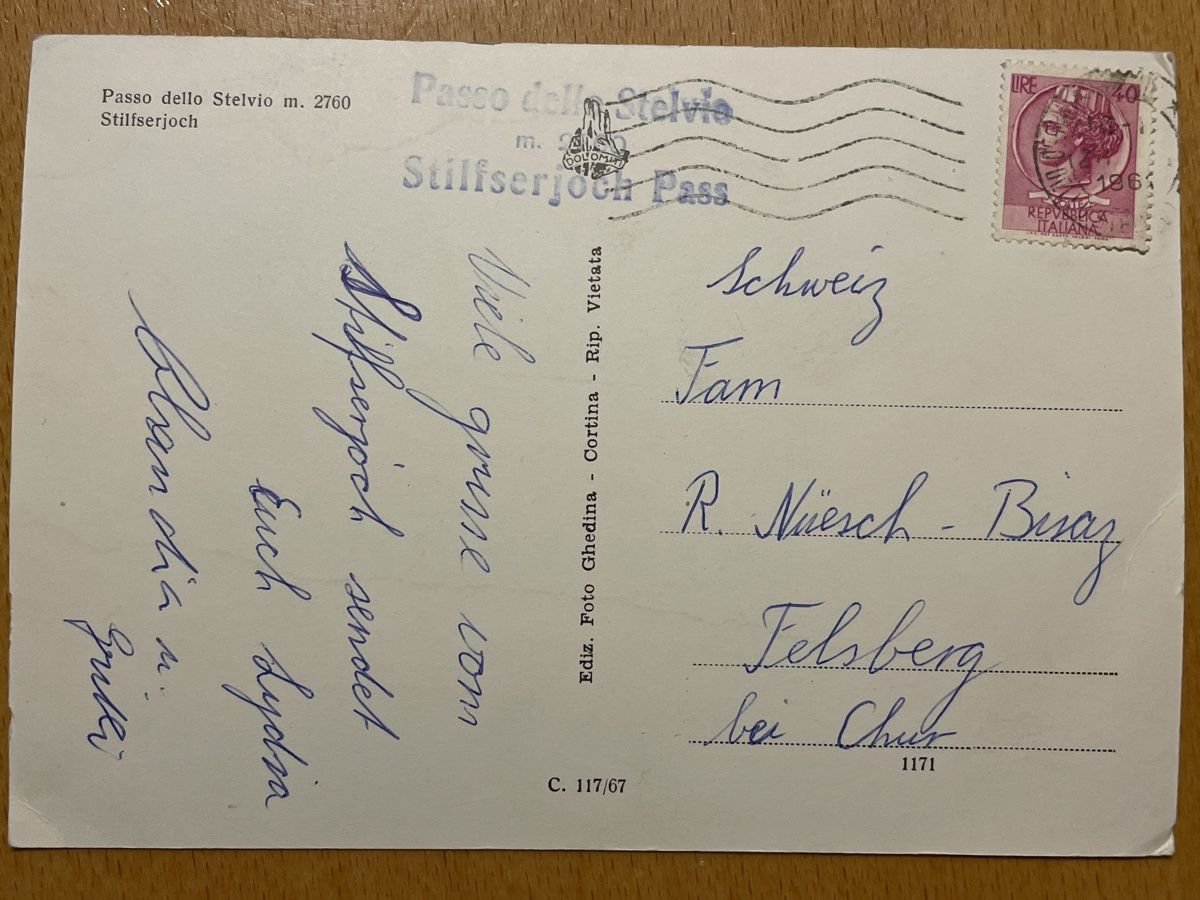 Passo dello Stelvio m. 2760
Stilfserjoch
Passo dello Stelvio
m. 2760
Stilfserjoch Pass
DOLOMITI
LIRE 40
196
REPVBBLICA
ITALIANA
Viele grusse vom
Stilfserjoch sendet
Euch Lydia
Claudia u.
Ediz. Foto Ghedina - Cortina - Rip. Vietata
Schweiz
Fam
R. Nüesch - Bisaz
Felsberg
bei Chur
1171
C. 117/67